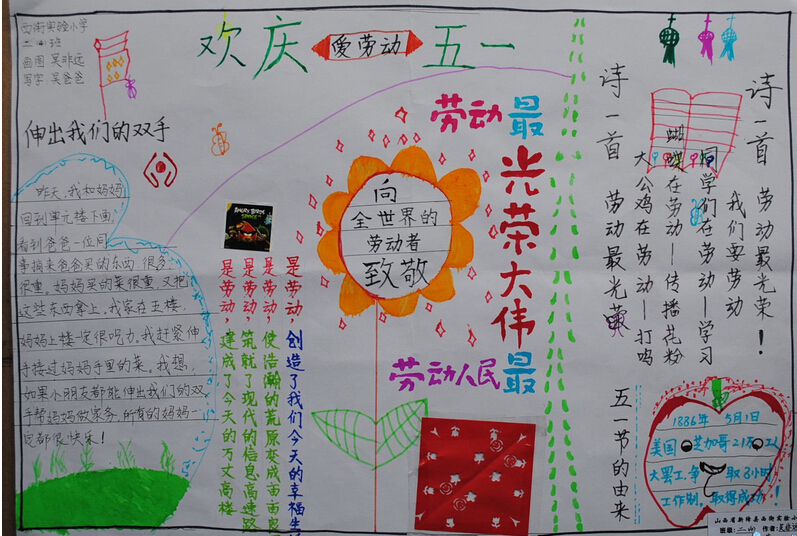 西街实验小学
二·四班
画图 吴非远
写字 吴爸爸
欢庆
爱劳动
五一
伸出我们的双手
昨天,我和妈妈
回到单元楼下面,
看到爸爸一位同
事捎来爸爸买的东西 很多,
很重,妈妈买的菜很重,又把
这些东西拿上,我家在五楼,
妈妈上楼一定很吃力,我赶紧伸
手接过妈妈手里的菜。我想,
如果小朋友都能伸出我们的双
手帮妈妈做家务,所有的妈妈一
定都很快乐!
ANGRY BIRDS
SPACE
向
全世界的
劳动者
致敬
劳动最
光荣
劳动人民最
伟大
是劳动,创造了我们今天的幸福生
是劳动,使浩瀚的荒原变成亩亩良
是劳动,筑就了现代的信息高速路
是劳动,建成了今天的万丈高楼
诗一首 劳动最光荣!
我们要劳动
同学们在劳动—学习
蝴蝶在劳动—传播花粉
大公鸡在劳动—打鸣
诗一首 劳动最光荣
五一节的由来
1886年 5月1日
美国 芝加哥21万 工人
大罢工,争 取8小时
工作制,取得成功!
山西省新绛县西街实验小
班级:二(4) 作者:吴